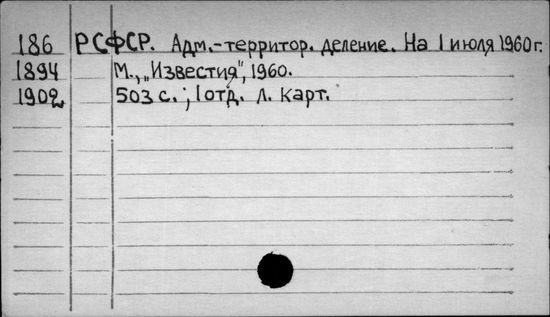 186 РСФСР. Адм.-территор. деление. На 1 июля 1960 г.
1894 М., „Известия", 1960.
1902 503 с.; 1 отд. л. карт.